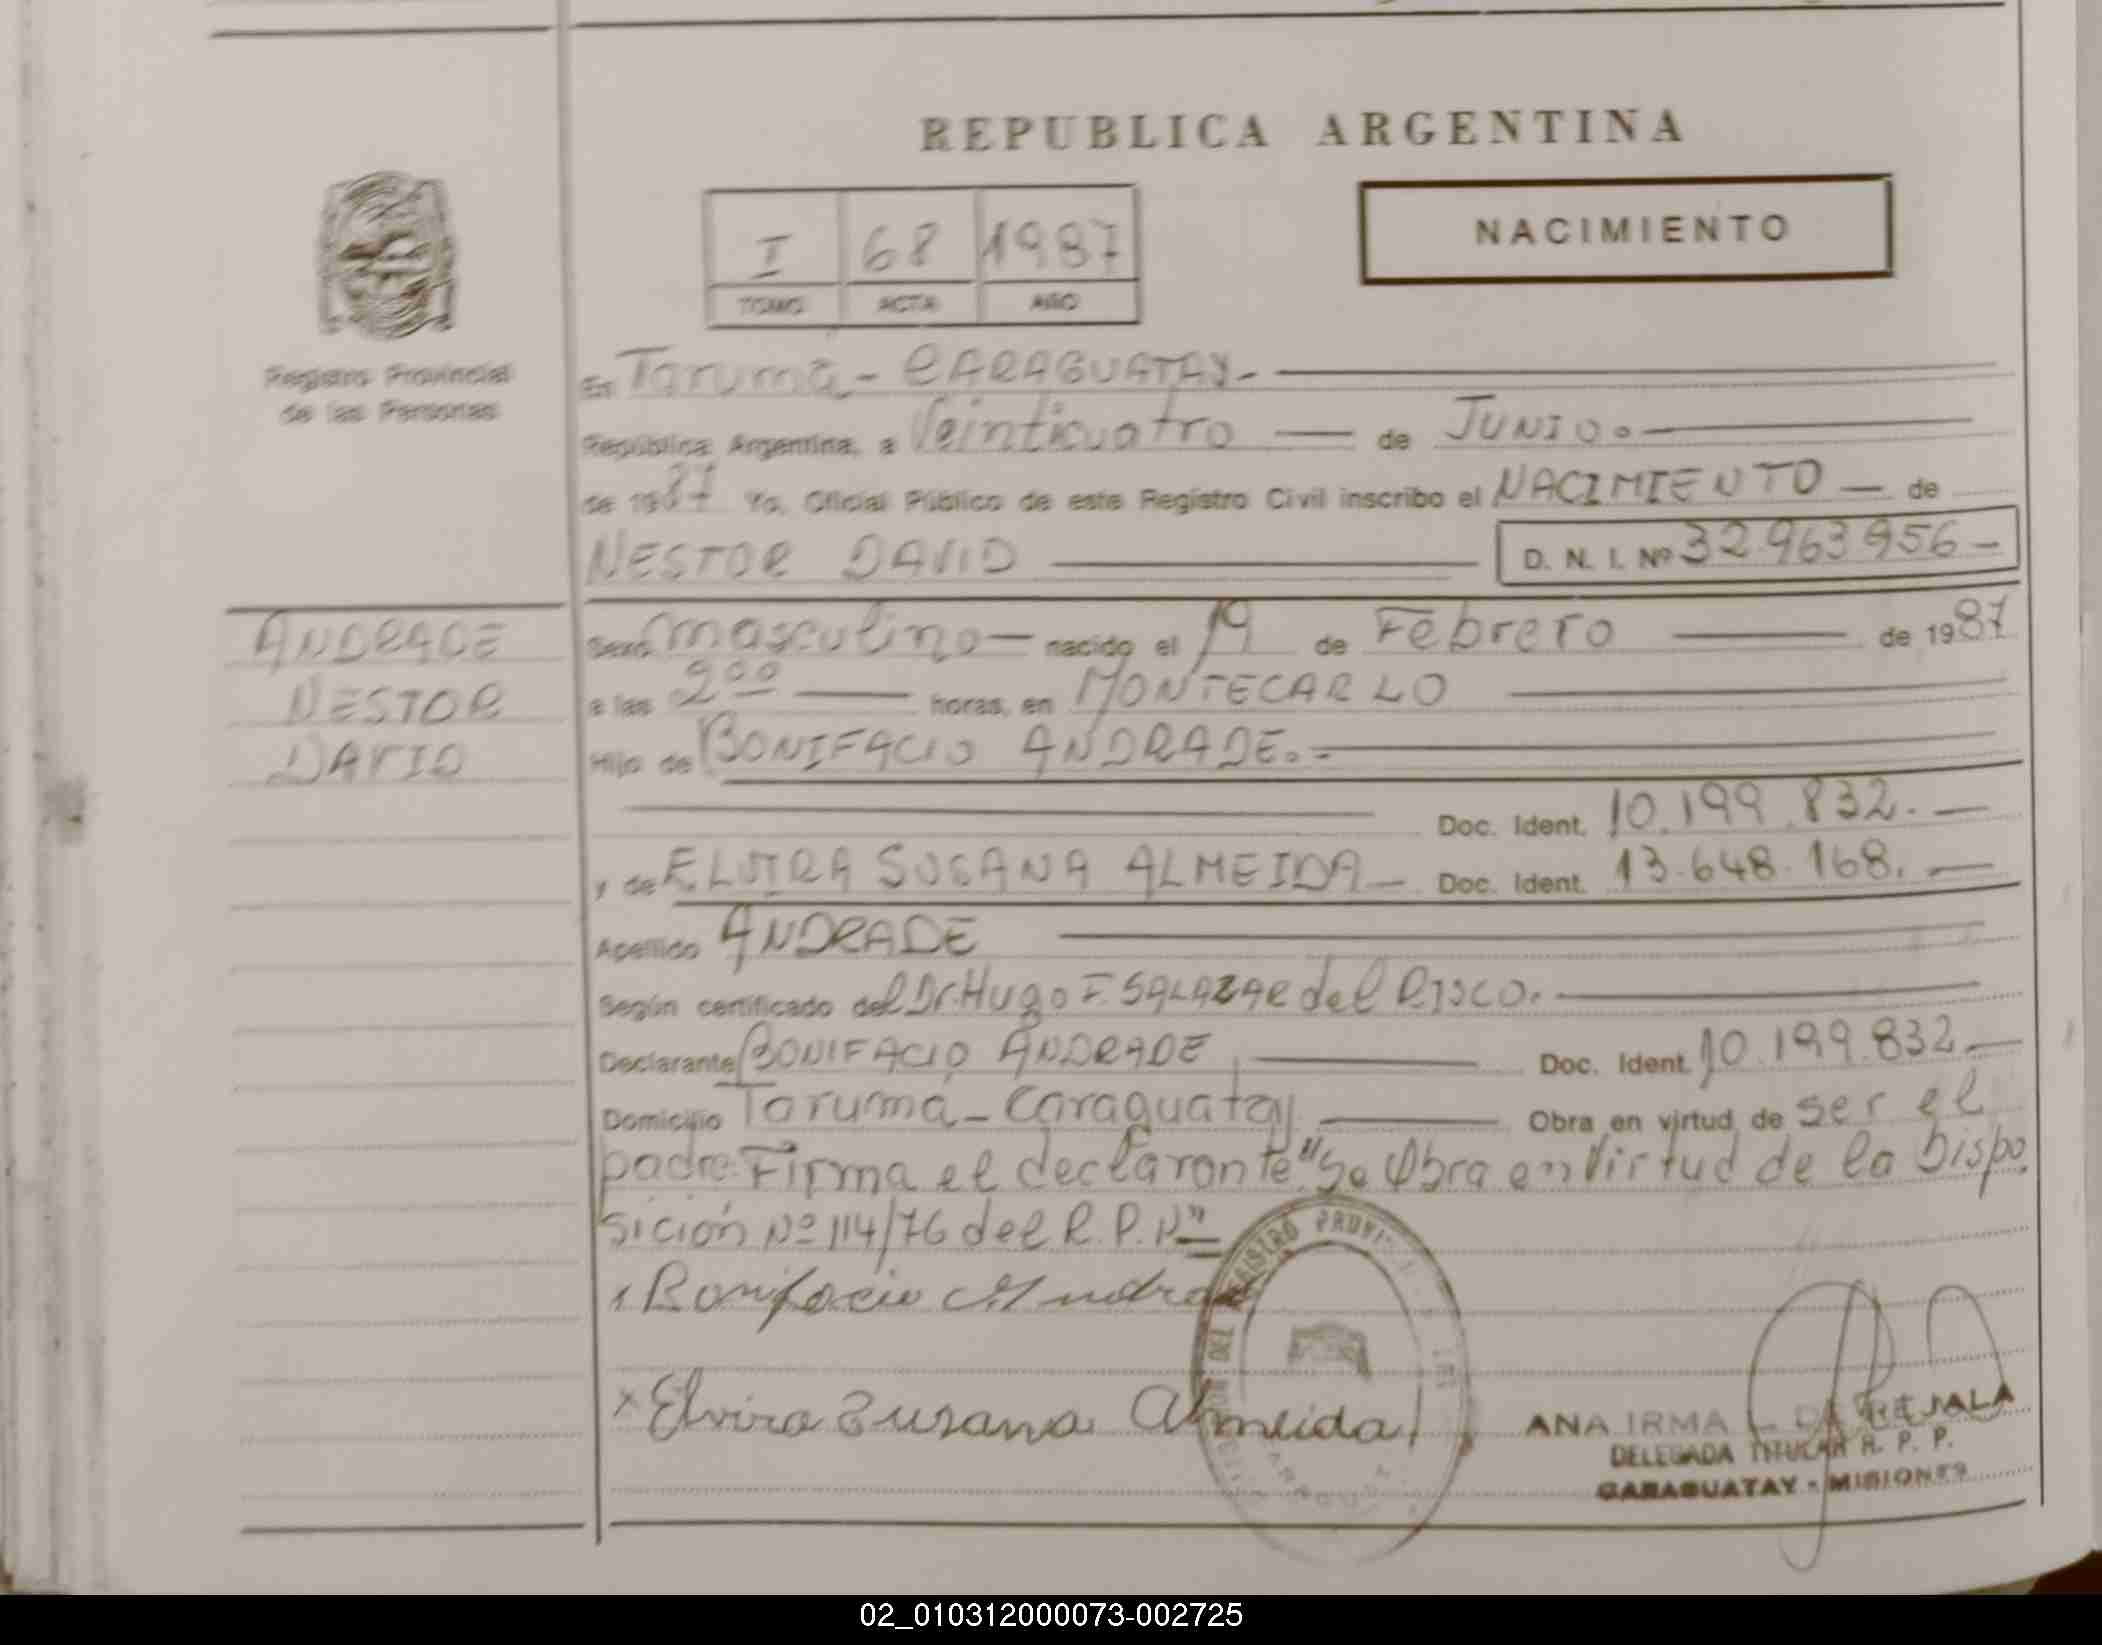 REPUBLICA ARGENTINA
NACIMIENTO
I 68 1987
TOMO ACTA AÑO
Registro Provincial
de las Personas
En Tarumá - CARAGUATAY.-
República Argentina, a Veinticuatro — de JUNIO.-
de 1987 Yo, Oficial Público de este Registro Civil inscribo el NACIMIENTO — de
NESTOR DAVID — D. N. I. Nº 32.963.956 -
ANDRADE
NESTOR
DAVID
Sexo masculino — nacido el 19 de Febrero — de 1987
a las 2 00 — horas, en MONTECARLO
Hijo de BONIFACIO ANDRADE.-
Doc. Ident. 10.199.832.-
y de ELVIRA SUSANA ALMEIDA — Doc. Ident. 13.648.168.-
Apellido ANDRADE
Según certificado del Dr. Hugo F. SALAZAR del RISCO.-
Declarante BONIFACIO ANDRADE — Doc. Ident. 10.199.832.-
Domicilio Tarumá - Caraguatay — Obra en virtud de ser el
padre. Firma el declarante "Se Obra en Virtud de la Dispo
sición Nº 114/76 del R. P. P."
Bonifacio Andrade
x Elvira Susana Almeida
REGISTRO PROVIN
DEL
ANA IRMA L. DE
DELEGADA TITULAR R. P. P.
CARAGUATAY - MISIONES
02_010312000073-002725